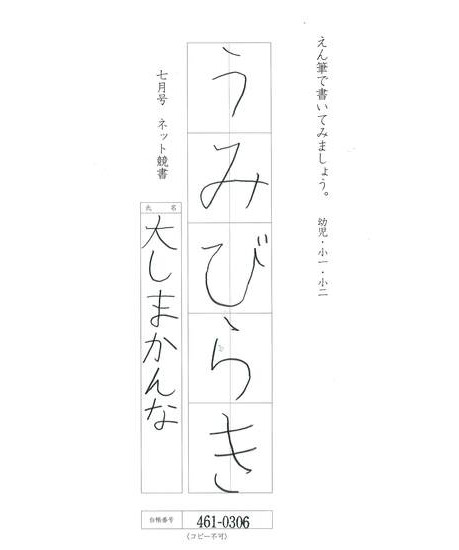 えん筆で書いてみましょう。 幼児・小一・小二
うみびらき
七月号 ネット競書
氏名
大しまかんな
台帳番号 461-0306
(コピー不可)